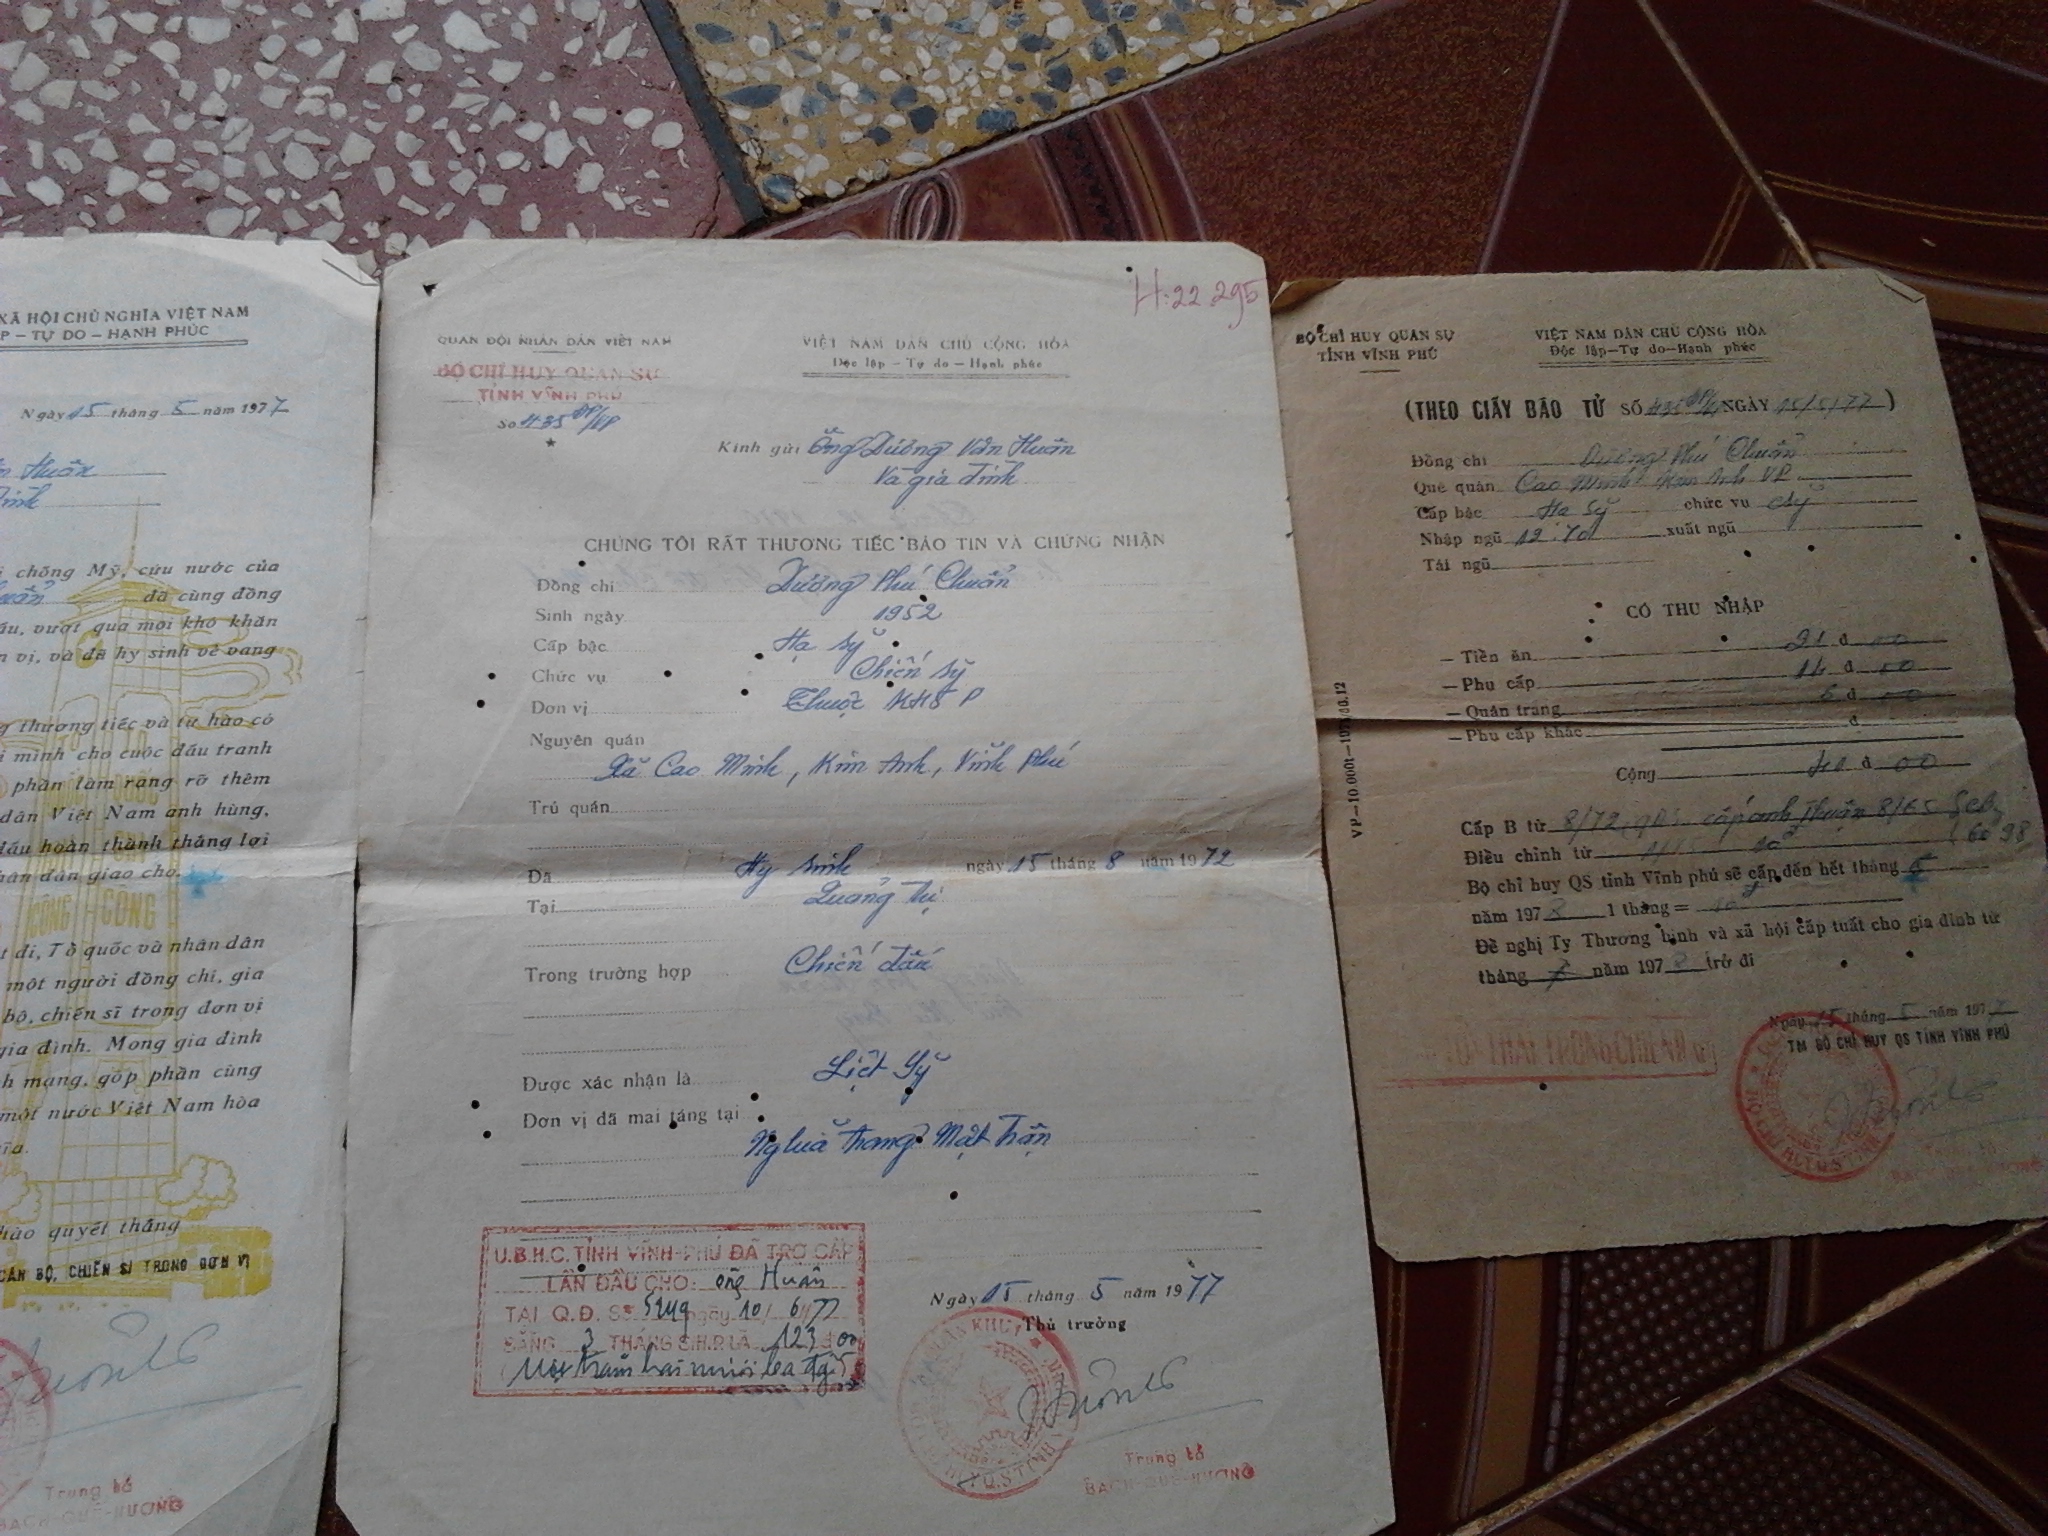 XÃ HỘI CHỦ NGHĨA VIỆT NAM
P - TỰ DO - HẠNH PHÚC
Ngày 15 tháng 5 năm 1977
Huấn
đình
chống Mỹ, cứu nước của
đã cùng đồng
ấu, vượt qua mọi khó khăn
n vị, và đã hy sinh vẻ vang
g thương tiếc và tự hào có
i mình cho cuộc đấu tranh
phần làm rạng rỡ thêm
dân Việt Nam anh hùng,
đấu hoàn thành thắng lợi
hân dân giao cho.
TỔ QUỐC
GHI
CÔNG
t đi, Tổ quốc và nhân dân
một người đồng chí, gia
bộ, chiến sĩ trong đơn vị
gia đình. Mong gia đình
h mạng, góp phần cùng
một nước Việt Nam hòa
ĩa.
hào quyết thắng
CÁN BỘ, CHIẾN SĨ TRONG ĐƠN VỊ
Trung tá
BẠCH-QUẾ-HƯƠNG
H: 22.295
QUÂN ĐỘI NHÂN DÂN VIỆT NAM
BỘ CHỈ HUY QUÂN SỰ
TỈNH VĨNH PHÚ
Số 435 /VP
★
VIỆT NAM DÂN CHỦ CỘNG HÒA
Độc lập - Tự do - Hạnh phúc
Kính gửi Ông Dương Văn Huấn
Và gia đình
CHÚNG TÔI RẤT THƯƠNG TIẾC BÁO TIN VÀ CHỨNG NHẬN
Đồng chí Dương Phú Chuẩn
Sinh ngày 1952
Cấp bậc Hạ sỹ
Chức vụ Chiến sỹ
Đơn vị Thuộc P
Nguyên quán
Xã Cao Minh, Kim Anh, Vĩnh Phú
Trú quán
Đã Hy sinh ngày 15 tháng 8 năm 1972
Tại Quảng Trị
Trong trường hợp Chiến đấu
Được xác nhận là Liệt Sỹ
Đơn vị đã mai táng tại
Nghĩa trang Mặt Trận
U.B.H.C. TỈNH VĨNH-PHÚ ĐÃ TRỢ CẤP
LẦN ĐẦU CHO: ông Huấn
TẠI Q.Đ. Số ngày 10/6/77
BẰNG 3 THÁNG S.H.P LÀ 123 đ 00
(Một trăm hai mươi ba đg)
Ngày 15 tháng 5 năm 1977
Thủ trưởng
Trung tá
BẠCH-QUẾ-HƯƠNG
BỘ CHỈ HUY QUÂN SỰ
TỈNH VĨNH PHÚ
VIỆT NAM DÂN CHỦ CỘNG HÒA
Độc lập - Tự do - Hạnh phúc
(THEO GIẤY BÁO TỬ SỐ 435 NGÀY 15/5/77)
Đồng chí Dương Phú Chuẩn
Quê quán Cao Minh Kim Anh VP
Cấp bậc Hạ sỹ chức vụ c/sỹ
Nhập ngũ 12.70 xuất ngũ
Tái ngũ
CÓ THU NHẬP
- Tiền ăn 21 đ 00
- Phụ cấp đ 00
- Quân trang đ 00
- Phụ cấp khác đ
Cộng đ 00
Cấp B từ 8/72
Điều chỉnh từ
Bộ chỉ huy QS tỉnh Vĩnh phú sẽ cấp đến hết tháng
năm 197 1 tháng =
Đề nghị Ty Thương binh và xã hội cấp tuất cho gia đình từ
tháng năm 197 trở đi
Ngày 15 tháng 5 năm 1977
TM BỘ CHỈ HUY QS TỈNH VĨNH PHÚ